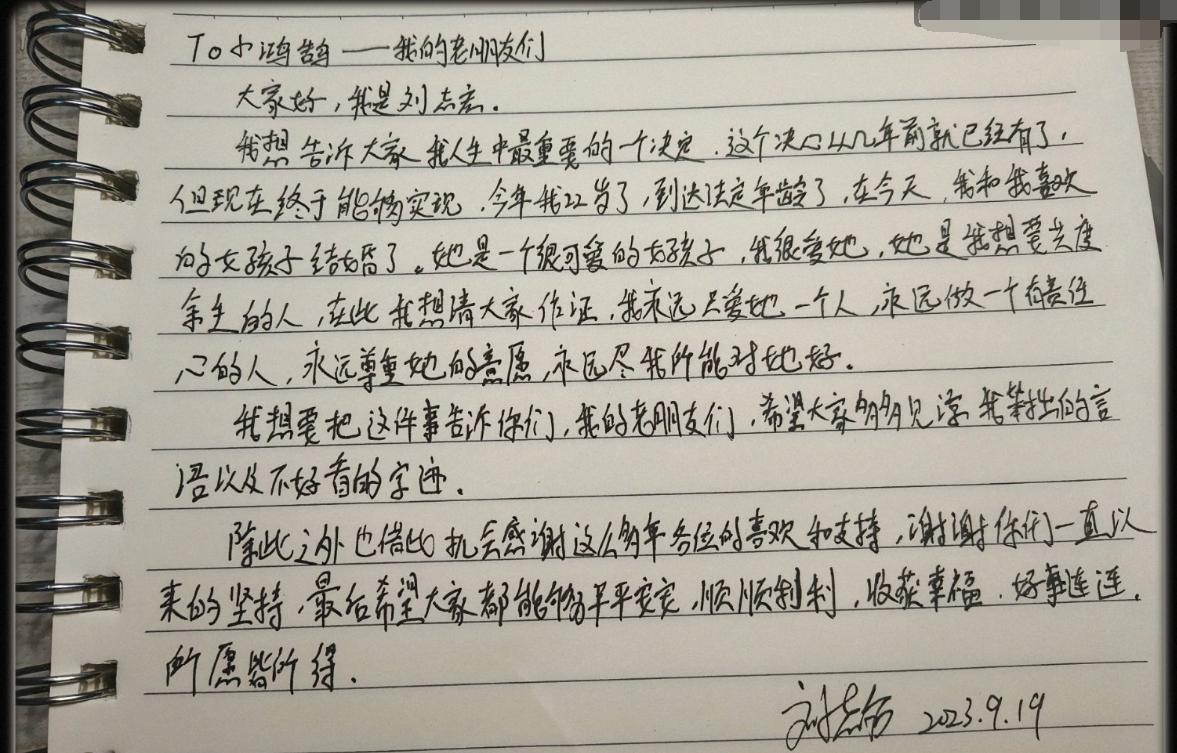 To 小鸿鹄——我的老朋友们
大家好,我是刘志宏.
我想告诉大家我人生中最重要的一个决定.这个决心从几年前就已经有了,
但现在终于能够实现.今年我22岁了,到达法定年龄了,在今天,我和我喜欢
的女孩子结婚了。她是一个很可爱的女孩子,我很爱她,她是我想要共度
余生的人,在此我想请大家作证,我永远只爱她一个人,永远做一个有责任
心的人,永远尊重她的意愿,永远尽我所能对她好.
我想要把这件事告诉你们,我的老朋友们,希望大家多多见谅我笨拙的言
语以及不好看的字迹.
除此之外也借此机会感谢这么多年各位的喜欢和支持,谢谢你们一直以
来的坚持,最后希望大家都能够平平安安,顺顺利利,收获幸福.好事连连,
所愿皆所得.
刘志宏 2023.9.19